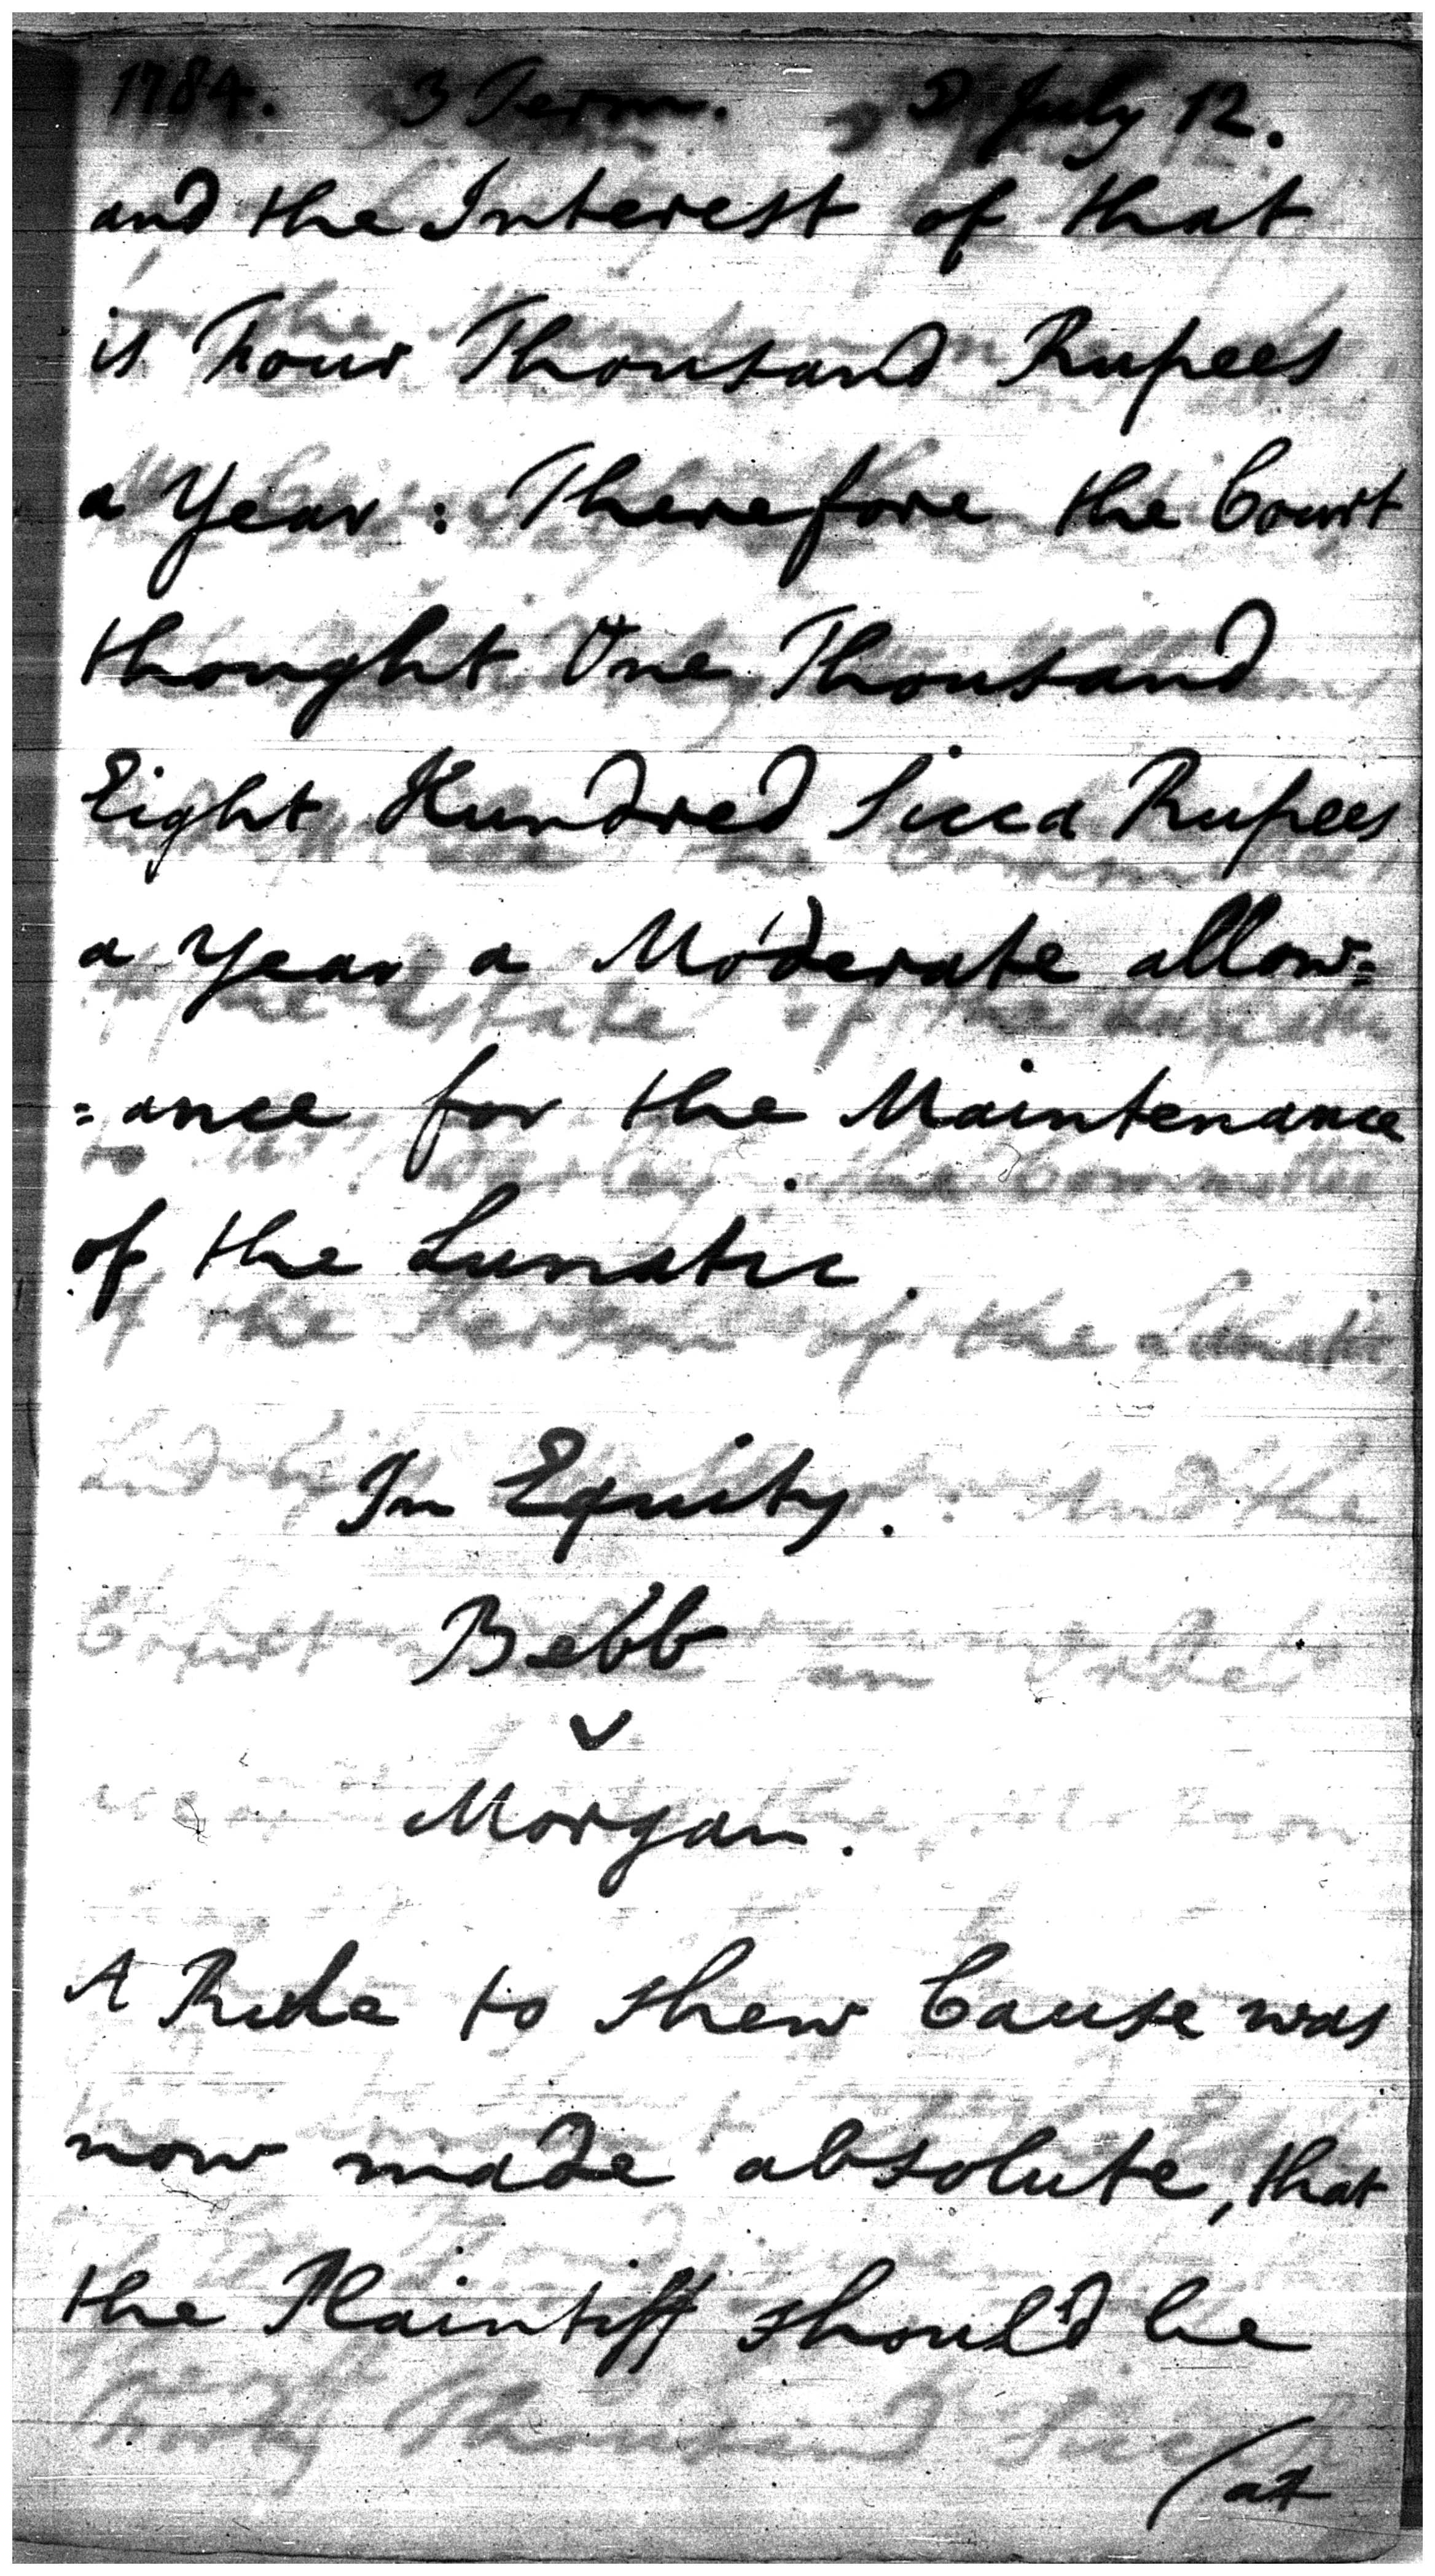 1784. 3 Term. July 12.
and the Interest of that
is Four Thousand Rupees
a Year : Therefore the Court
thought One Thousand
Eight Hundred Sicca Rupees
a Year a Moderate allow=
=ance for the Maintenance
of the Lunatic.
In Equity.
Bebb
v
Morgan.
A Rule to shew Cause was
now made absolute, that
the Plaintiff should be
(at